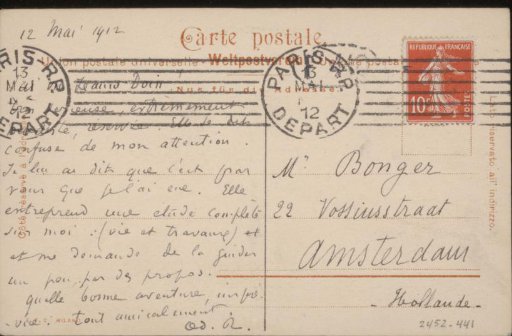 12 Mai 1912
Carte postale.
Union postale universelle. Weltpostverein.
Nur für die Adresse.
PARIS R.P.
13
MAI
12
DEPART
PARIS R.P.
13
MAI
12
DEPART
REPUBLIQUE FRANÇAISE
10
POSTES
extrêmement
Elle se dit
confuse de mon attention.
Je lui ai dit que c'est par
vous que je l'ai eue. Elle
entreprend une etude complète
sur moi : (vie et travaux) et
et me demande de la guider
un peu, par des propos.
quelle bonne aventure,
vie. tout amicalement
Od. R.
Mr Bonger
22 Vossiusstraat
Amsterdam
- Hollande -
2452-441
Lato riservato all'indirizzo.
Côté réservé à